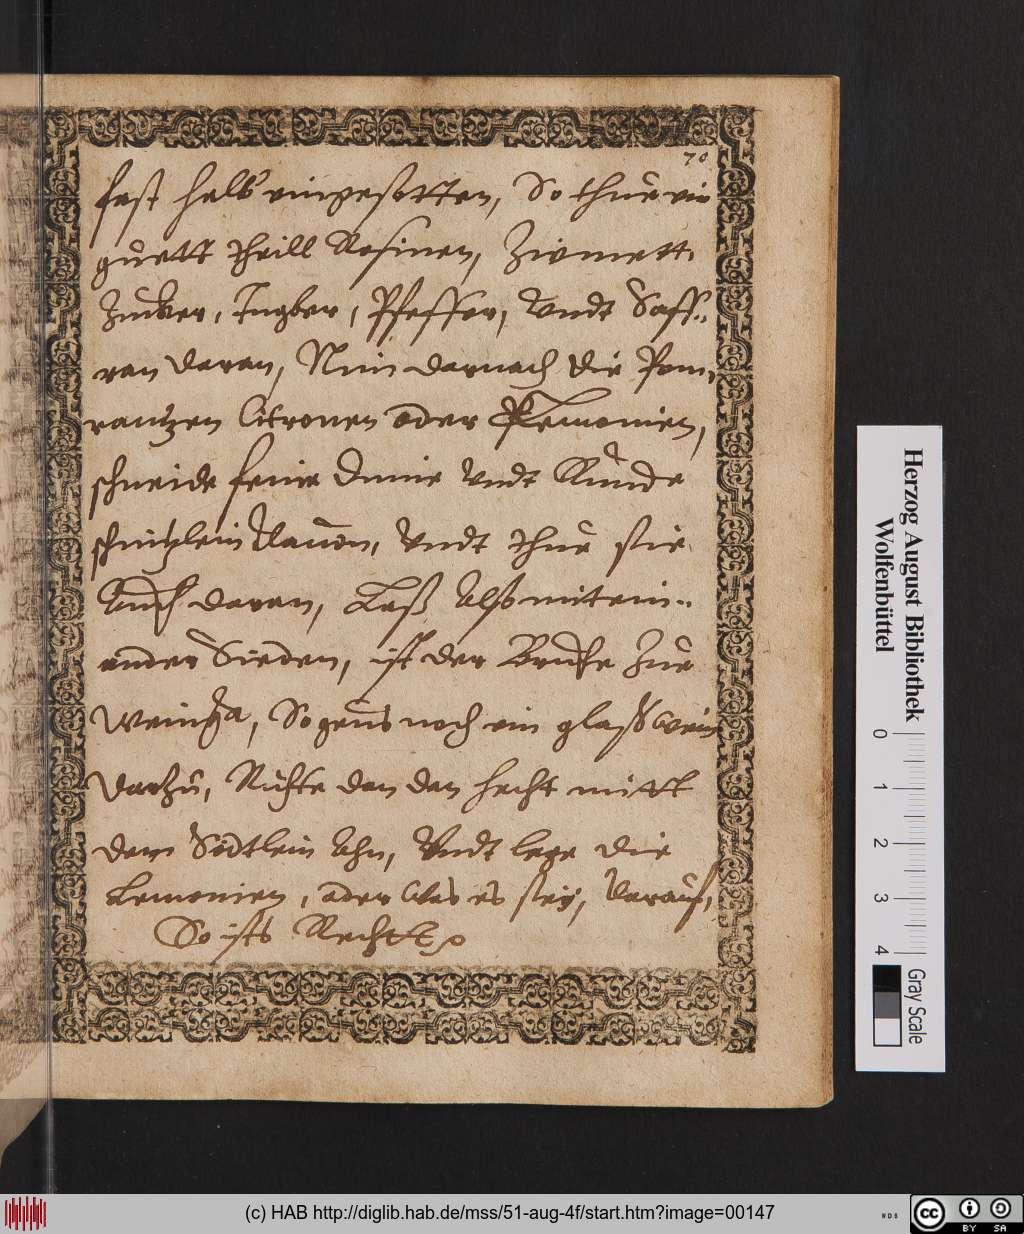 70
fast halb eingesotten, So thue ein
guett theill Rosinen, Zimmett
Zucker, Ingber, Pfeffer, Vndt Saff„
ran daran, Nim darnach die Pom„
rantzen Citronen oder Lemonien,
schneide feine Dinne Vndt Runde
schnitzlein dauon, Vndt thue sie
Auch daran, Laß Alßo mitein„
ander Sieden, ist der Brüche Zue
Weinig, So geus noch ein glaß Wein
darzu, Richte den den hecht mitt
dem Södtlein Ahn, Vndt lege die
Lemonien, oder Was es sey, darauf,
So ists Recht
Herzog August Bibliothek
Wolfenbüttel
0 1 2 3 4
Gray Scale
(c) HAB http://diglib.hab.de/mss/51-aug-4f/start.htm?image=00147
WDB
cc BY SA